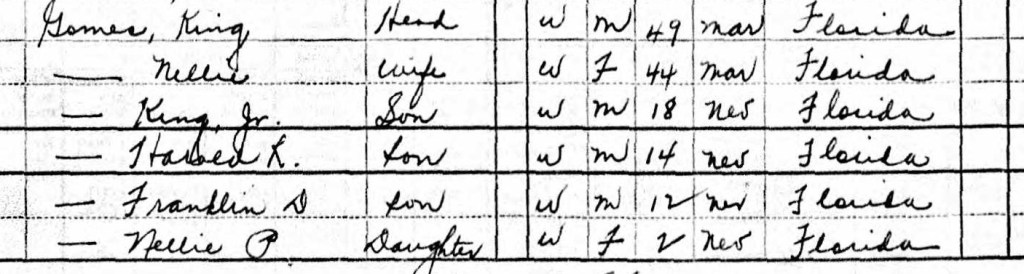 Gomes, King Head W M 49 Mar Florida
— Nellie Wife W F 44 Mar Florida
— King, Jr. Son W M 18 Nev Florida
— Harold R. Son W M 14 Nev Florida
— Franklin D Son W M 12 Nev Florida
— Nellie P. Daughter W F 2 Nev Florida